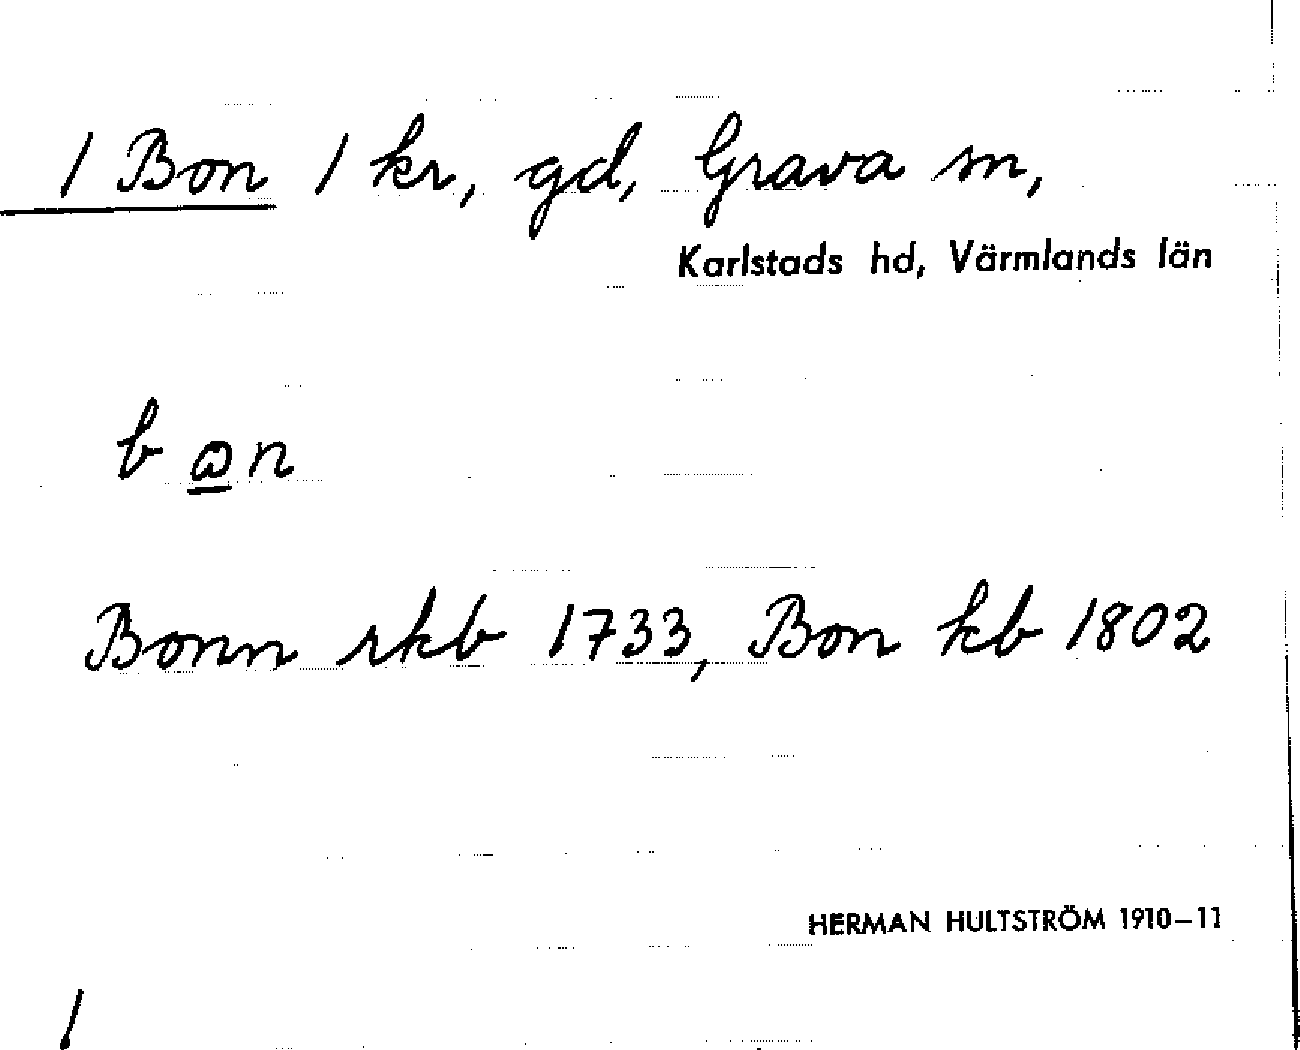 / Bon / kr, gd, Grava sn,
Karlstads hd, Värmlands län
b ω̲ n
Bonn rkb 1733, Bon kb 1802
HERMAN HULTSTRÖM 1910–11
/